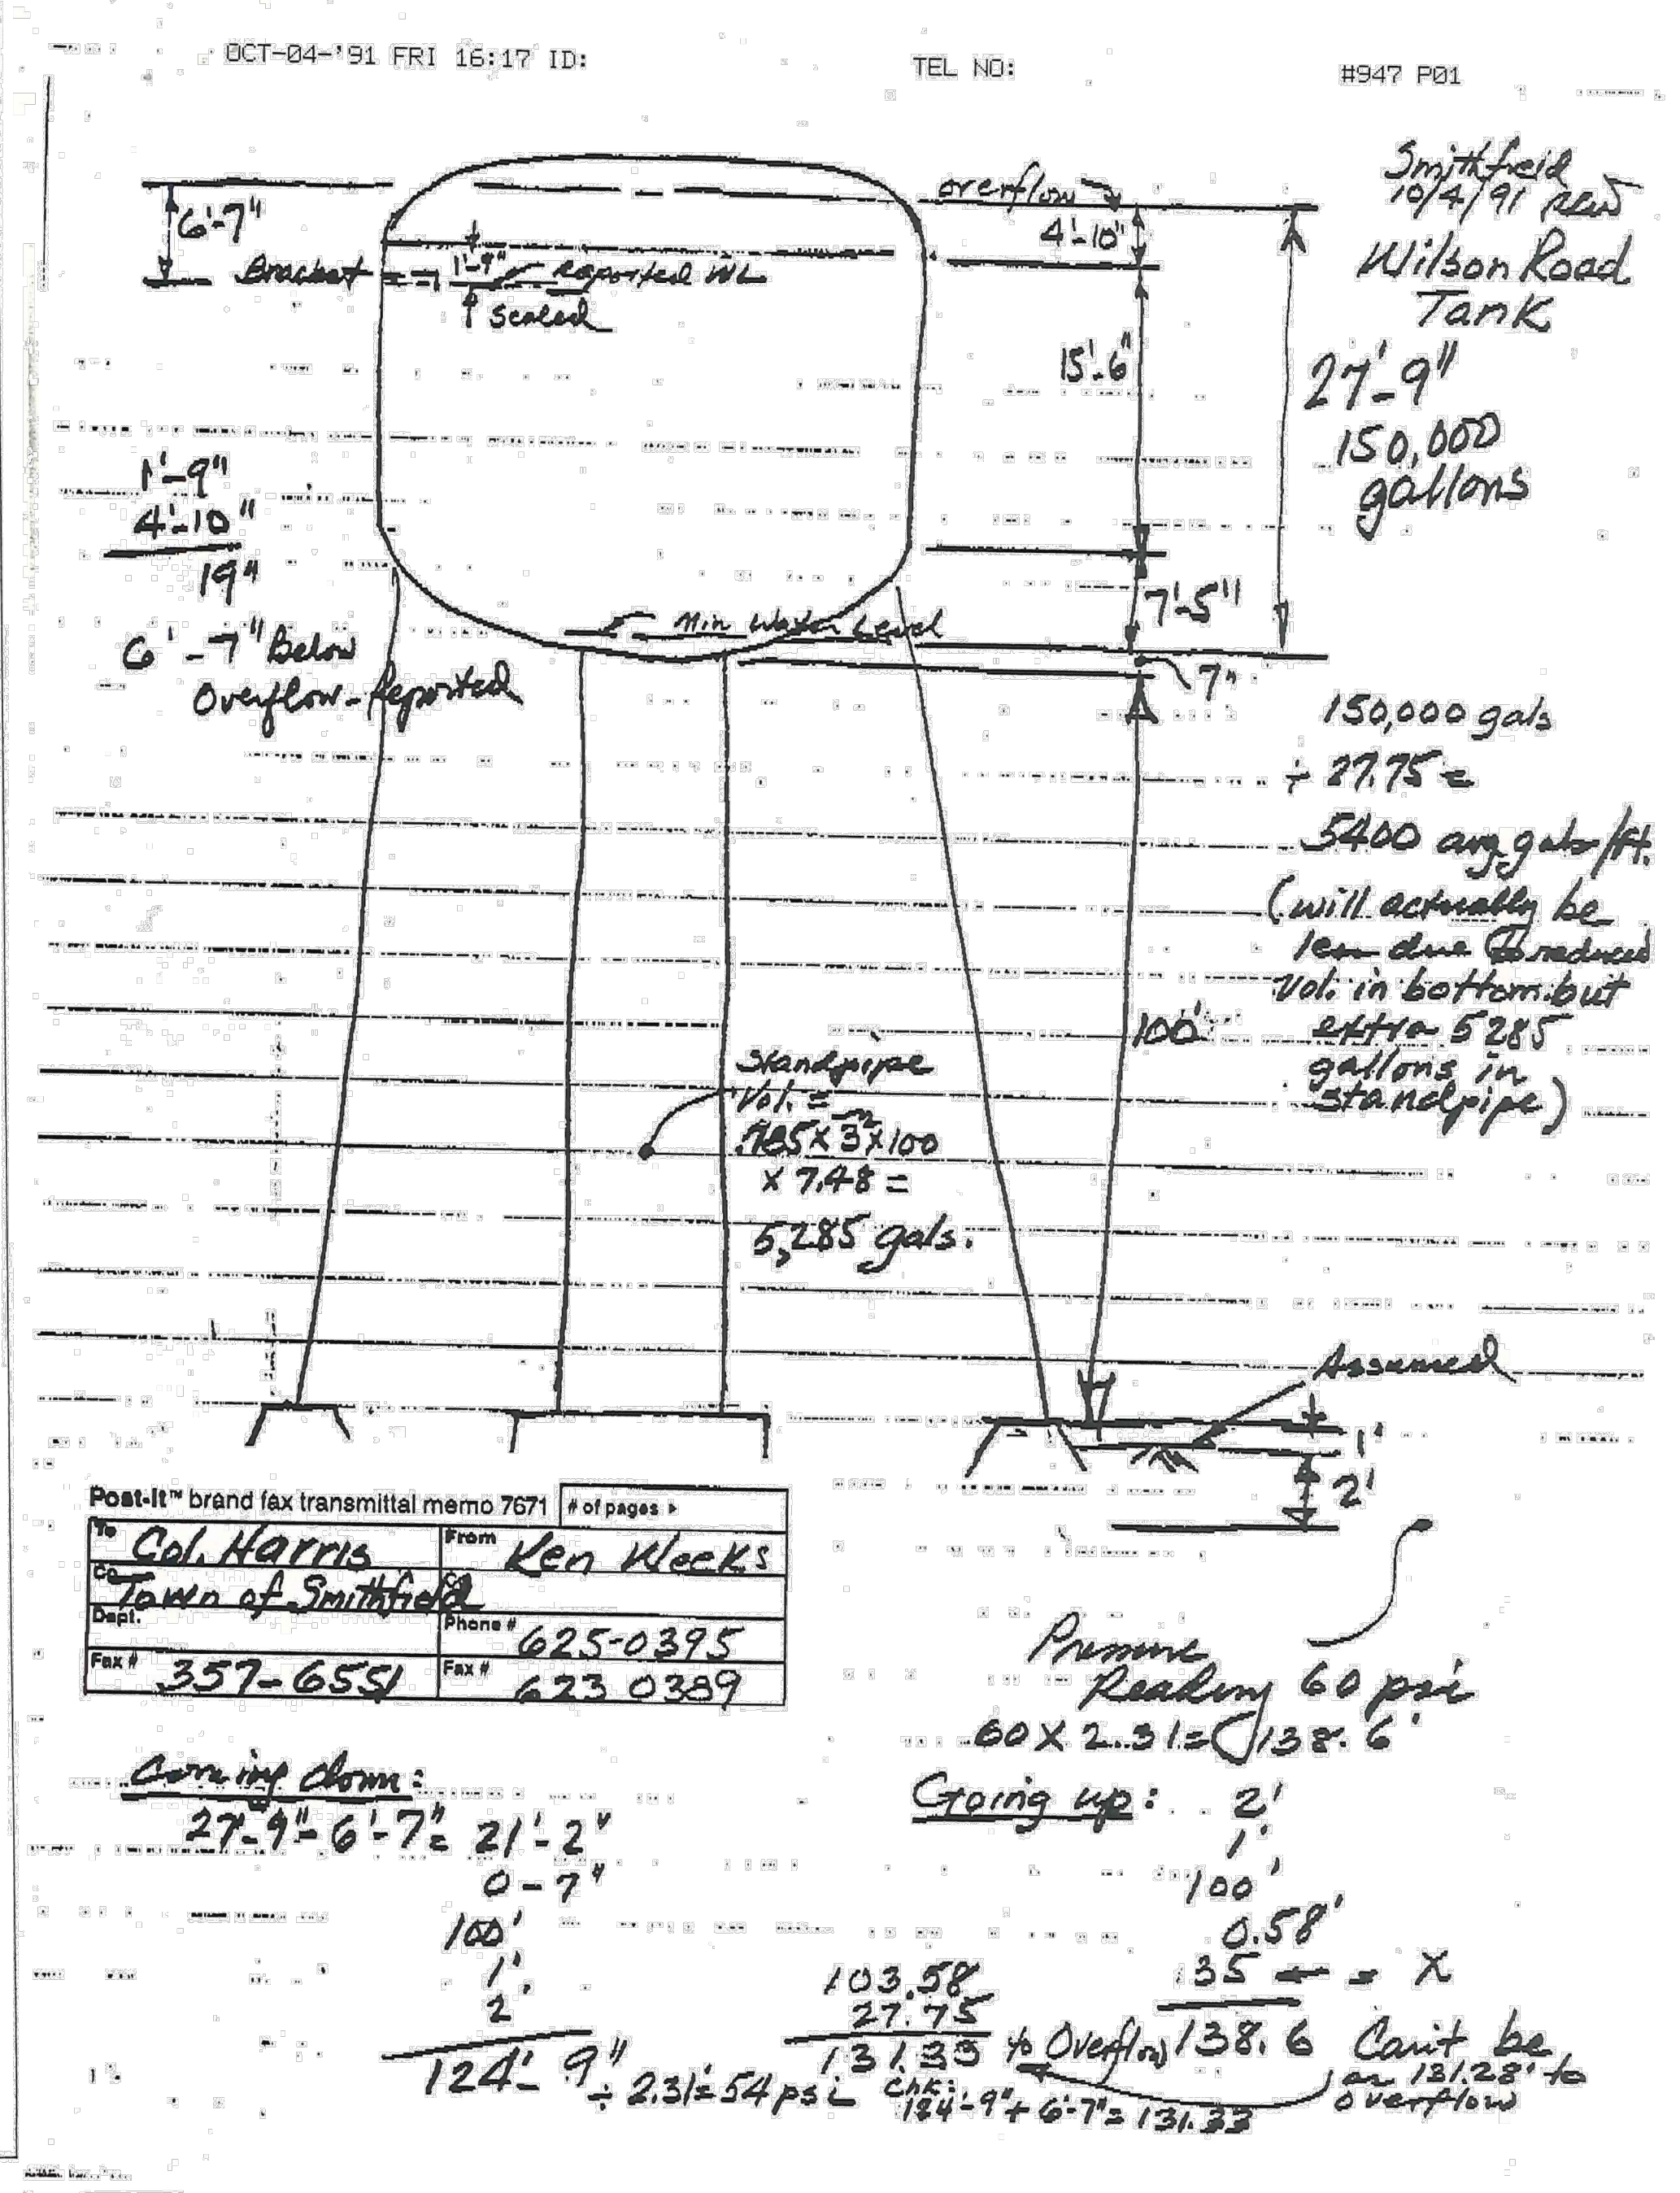 OCT-04-'91 FRI 16:17 ID:
TEL NO:
#947 P01
Smithfield
10/4/91
Wilson Road
Tank
27'-9"
150,000
gallons
overflow
4'-10"
6'-7"
Bracket
1'-9"
Reported WL
Scaled
15'-6"
1'-9"
4'-10"
19"
6'-7" Below
Overflow-Reported
7'-5"
Min Water Level
7"
150,000 gals
÷ 27.75 =
5400 avg gals/ft.
(will actually be
less due to reduced
Vol. in bottom but
extra 5285
gallons in
standpipe)
100'
Standpipe
Vol. =
.785 x 3² x 100
x 7.48 =
5,285 gals.
Assumed
1'
2'
Post-It™ brand fax transmittal memo 7671
# of pages ▸
To Col. Harris
From Ken Weeks
Co. Town of Smithfield
Co.
Dept.
Phone # 625-0395
Fax # 357-6551
Fax # 623 0389
Pressure
Reading 60 psi
60 x 2.31 = 138.6'
Coming down:
27'-9" - 6'-7" = 21'-2"
0-7"
100'
1'
2
124'-9"
÷ 2.31 = 54 psi
Going up: 2'
1'
100'
0.58'
35 = X
138.6 Can't be
or 131.28' to
overflow
103.58
27.75
131.33 to Overflow
Chk:
124'-9" + 6'-7" = 131.33